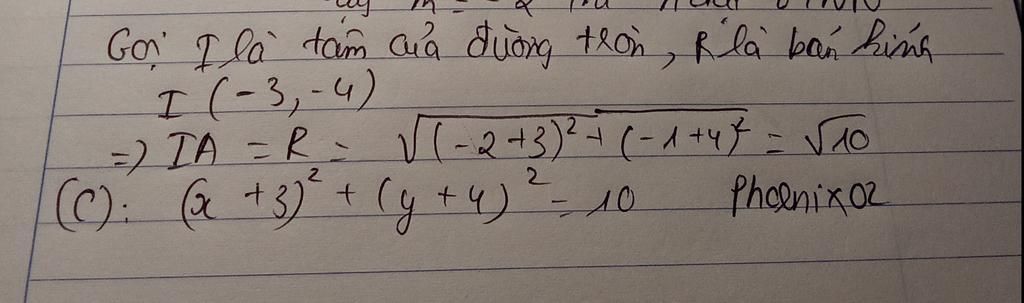 Gọi I là tâm của đường tròn, R là bán kính
I (-3, -4)
=> IA = R = √((-2+3)² + (-1+4)²) = √10
(C): (x+3)² + (y+4)² = 10 Phoenix02